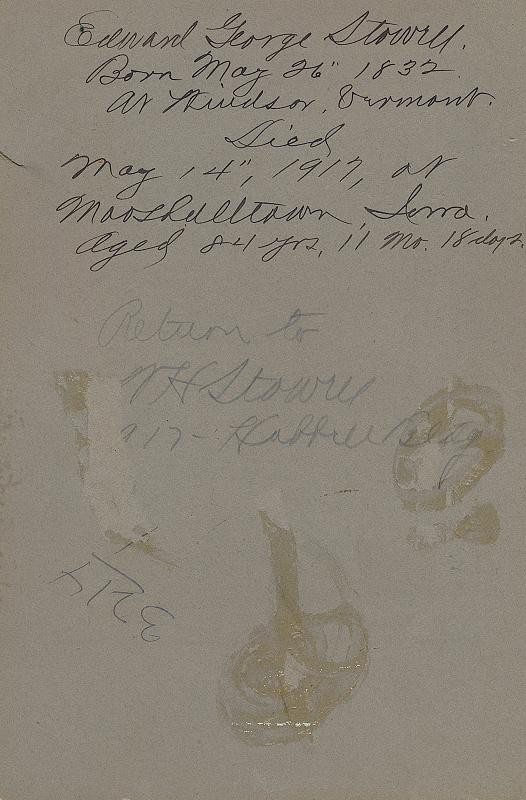 Edward George Stowell.
Born May 26" 1832
At Windsor, Vermont.
Died
May 14", 1917, at
Marshalltown, Iowa.
Aged 84 yrs, 11 Mo. 18 days.
Return to
WH Stowell
917 - Hubbell Bldg